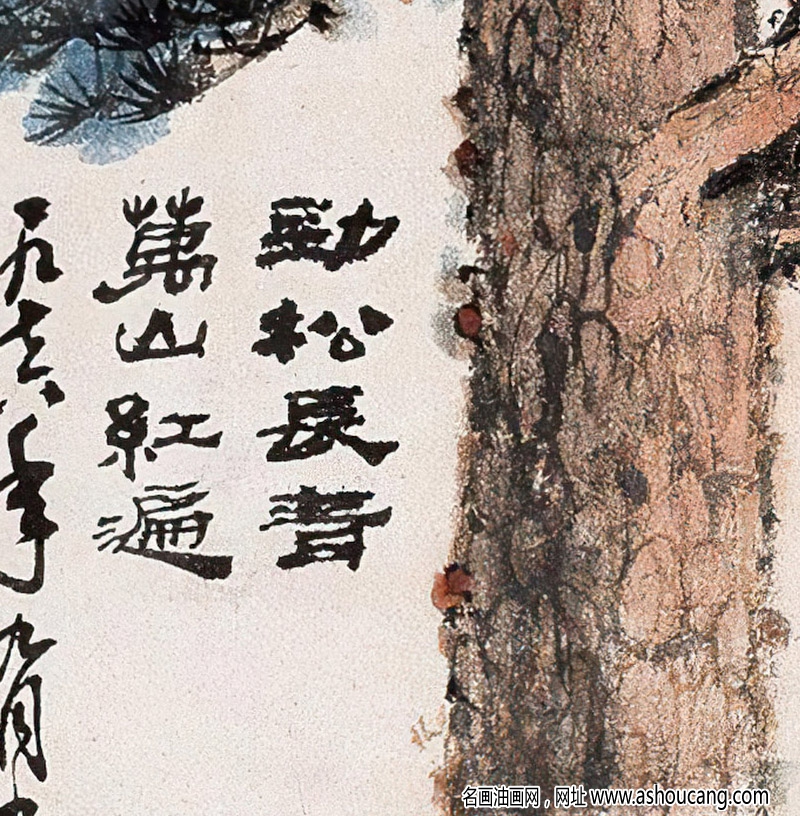 勁松長青
萬山紅遍
一九七六年九月
名画油画网，网址 www.ashoucang.com